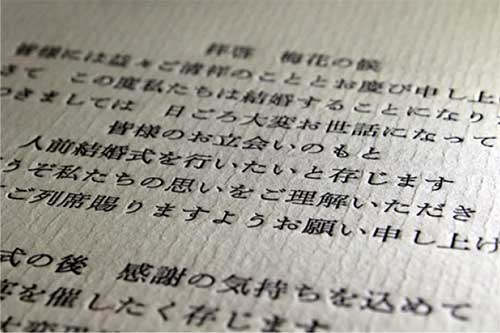 拝啓 梅花の候
皆様には益々ご清祥のこととお慶び申し上
さて この度私たちは結婚することになり
つきましては 日ごろ大変お世話になって
皆様のお立会いのもと
人前結婚式を行いたいと存じます
うぞ私たちの思いをご理解いただき
ご列席賜りますようお願い申し上げ
式の後 感謝の気持ちを込めて
を催したく存じます